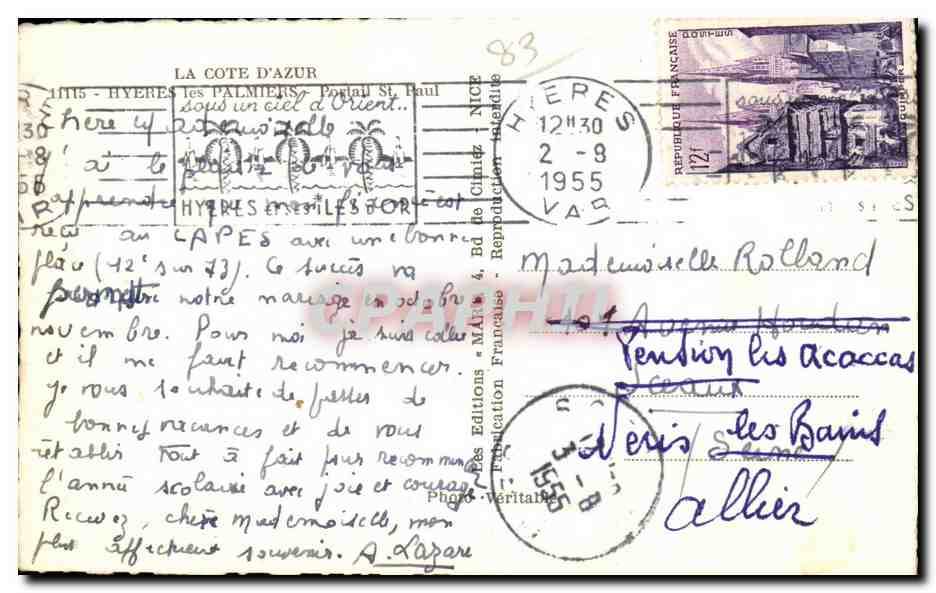 83
LA COTE D'AZUR
11115 - HYERES les PALMIERS - Portail St Paul
sous un ciel d'Orient..
HYERES ET SES ILES D'OR
Chère Mademoiselle
J'ai le plaisir de vous
apprendre que mon fiancé est
reçu au CAPES avec une bonne
place (12e sur 73). Ce succès va
permettre notre mariage en octobre
novembre. Pour moi je suis collée
et il me faut recommencer.
Je vous souhaite de passer de
bonnes vacances et de vous
rétablir tout à fait pour recommencer
l'année scolaire avec joie et courage
Recevez, chère Mademoiselle, mon
plus affectueux souvenir. A. Lazare
Les Editions « MAR » 4, Bd de Cimiez - NICE
Fabrication Française - Reproduction interdite
Photo Véritable
HYERES
12H30
2 -8
1955
VAR
REPUBLIQUE FRANÇAISE
POSTES
QUIMPER
12f
Mademoiselle Rolland
101 Avenue Houdan
Pension les Acaccas
Sceaux
Néris les Bains
/Seine/
Allier
3 -8
1955
CPARAMA